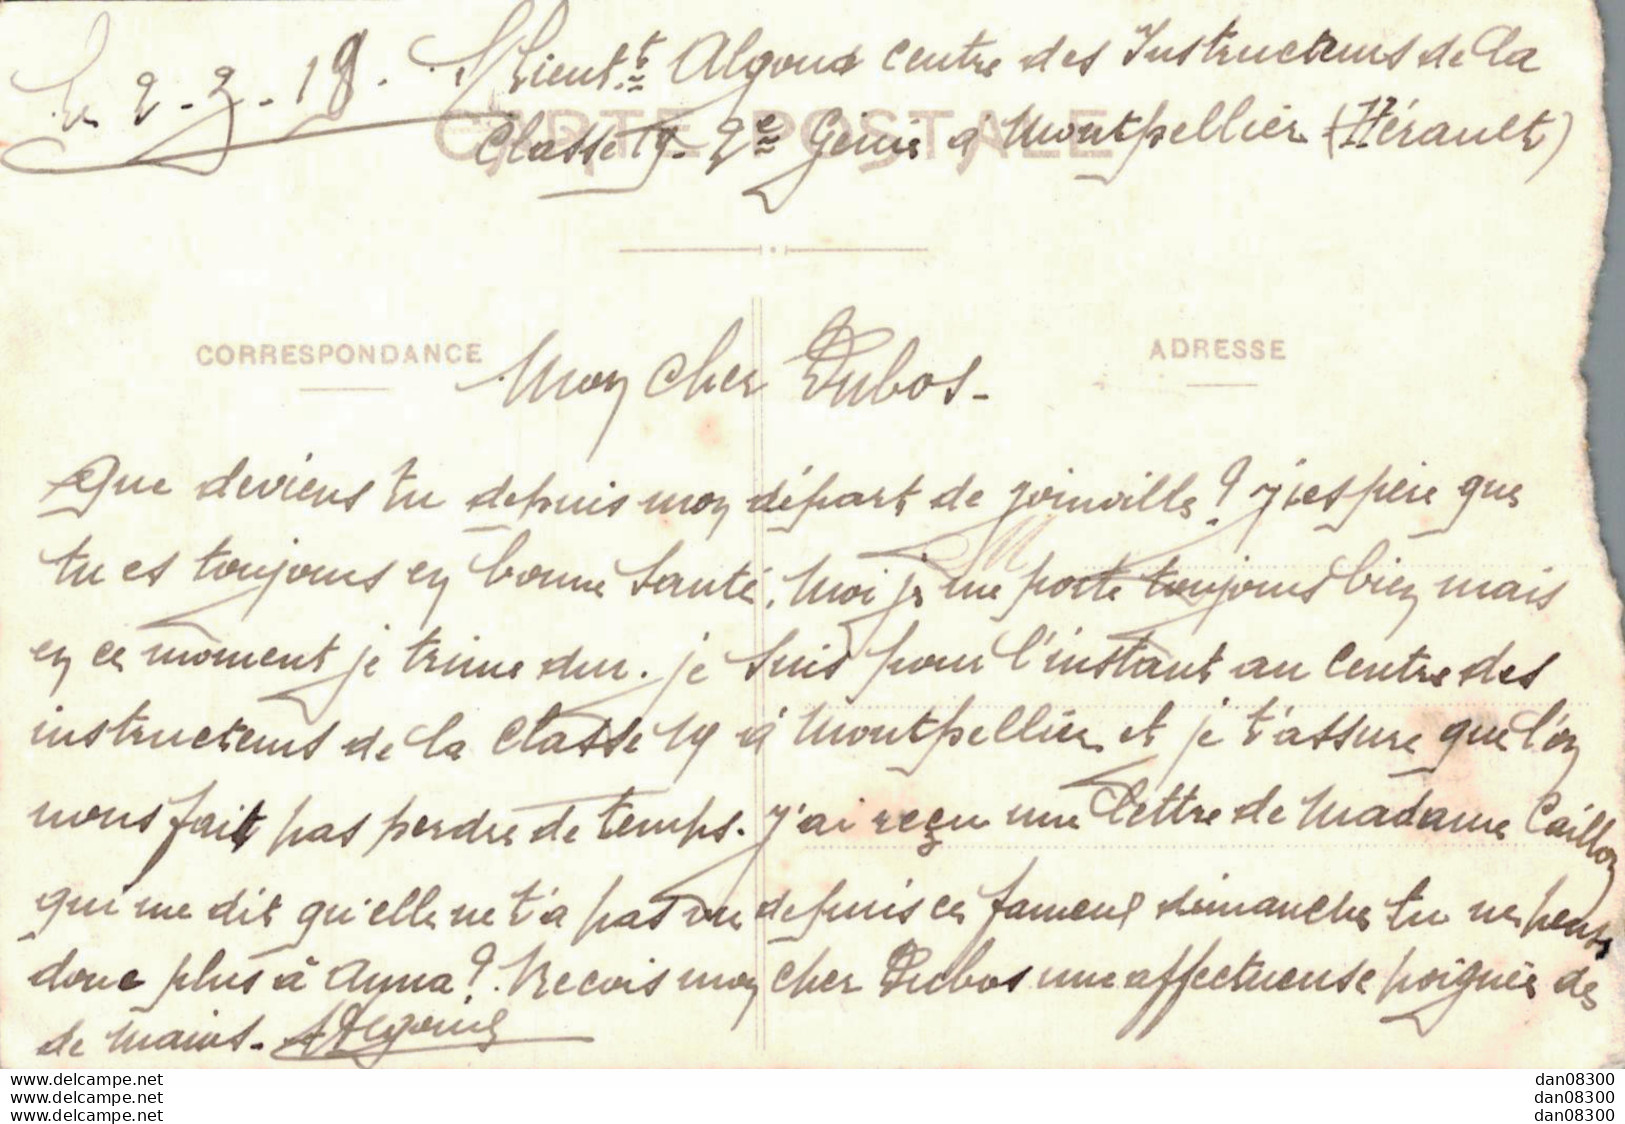 Le 2-2-18. S/Lieutt Algoud Centre des Instructeurs de la
CARTE POSTALE
Classe 19- 2e Génie à Montpellier (Hérault)
CORRESPONDANCE
ADRESSE
Mon cher Dubos-
Que deviens tu depuis mon départ de Joinville? J'espère que
tu es toujours en bonne santé. Moi je me porte toujours bien mais
en ce moment je trime dur. je suis pour l'instant au Centre des
instructeurs de la Classe 19 à Montpellier et je t'assure que l'on
nous fait pas perdre de temps. J'ai reçu une lettre de Madame Caillon
qui me dit qu'elle ne t'a pas vu depuis ce fameux dimanche tu ne penses
donc plus à Anna? Recois mon cher Dubos une affectueuse poignée de
de mains. Algoud
www.delcampe.net
www.delcampe.net
www.delcampe.net
dan08300
dan08300
dan08300